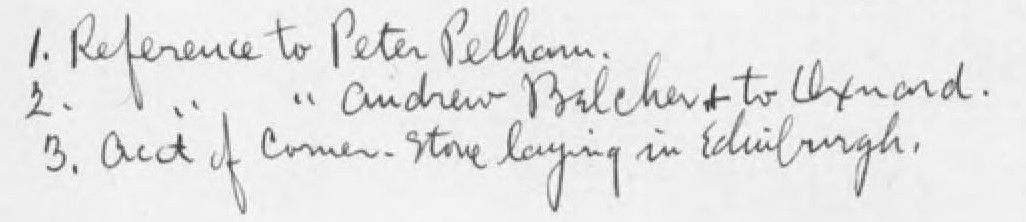 1. Reference to Peter Pelham.
2. " " Andrew Belcher & to Oxnard.
3. Acct of Corner-Stone laying in Edinburgh.